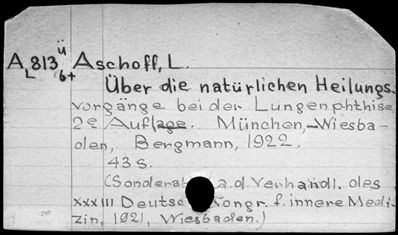 A L 813 ü 6+ Aschoff, L.
Über die natürlichen Heilungs-
vorgänge bei der Lungenphthise
2e Auflage. München,-Wiesba-
den, Bergmann, 1922.
43 s.
(Sonderab a.d. Verhandl. des
XXXIII Deutsc Kongr. f. innere Medi-
zin, 1921, Wiesbaden.)